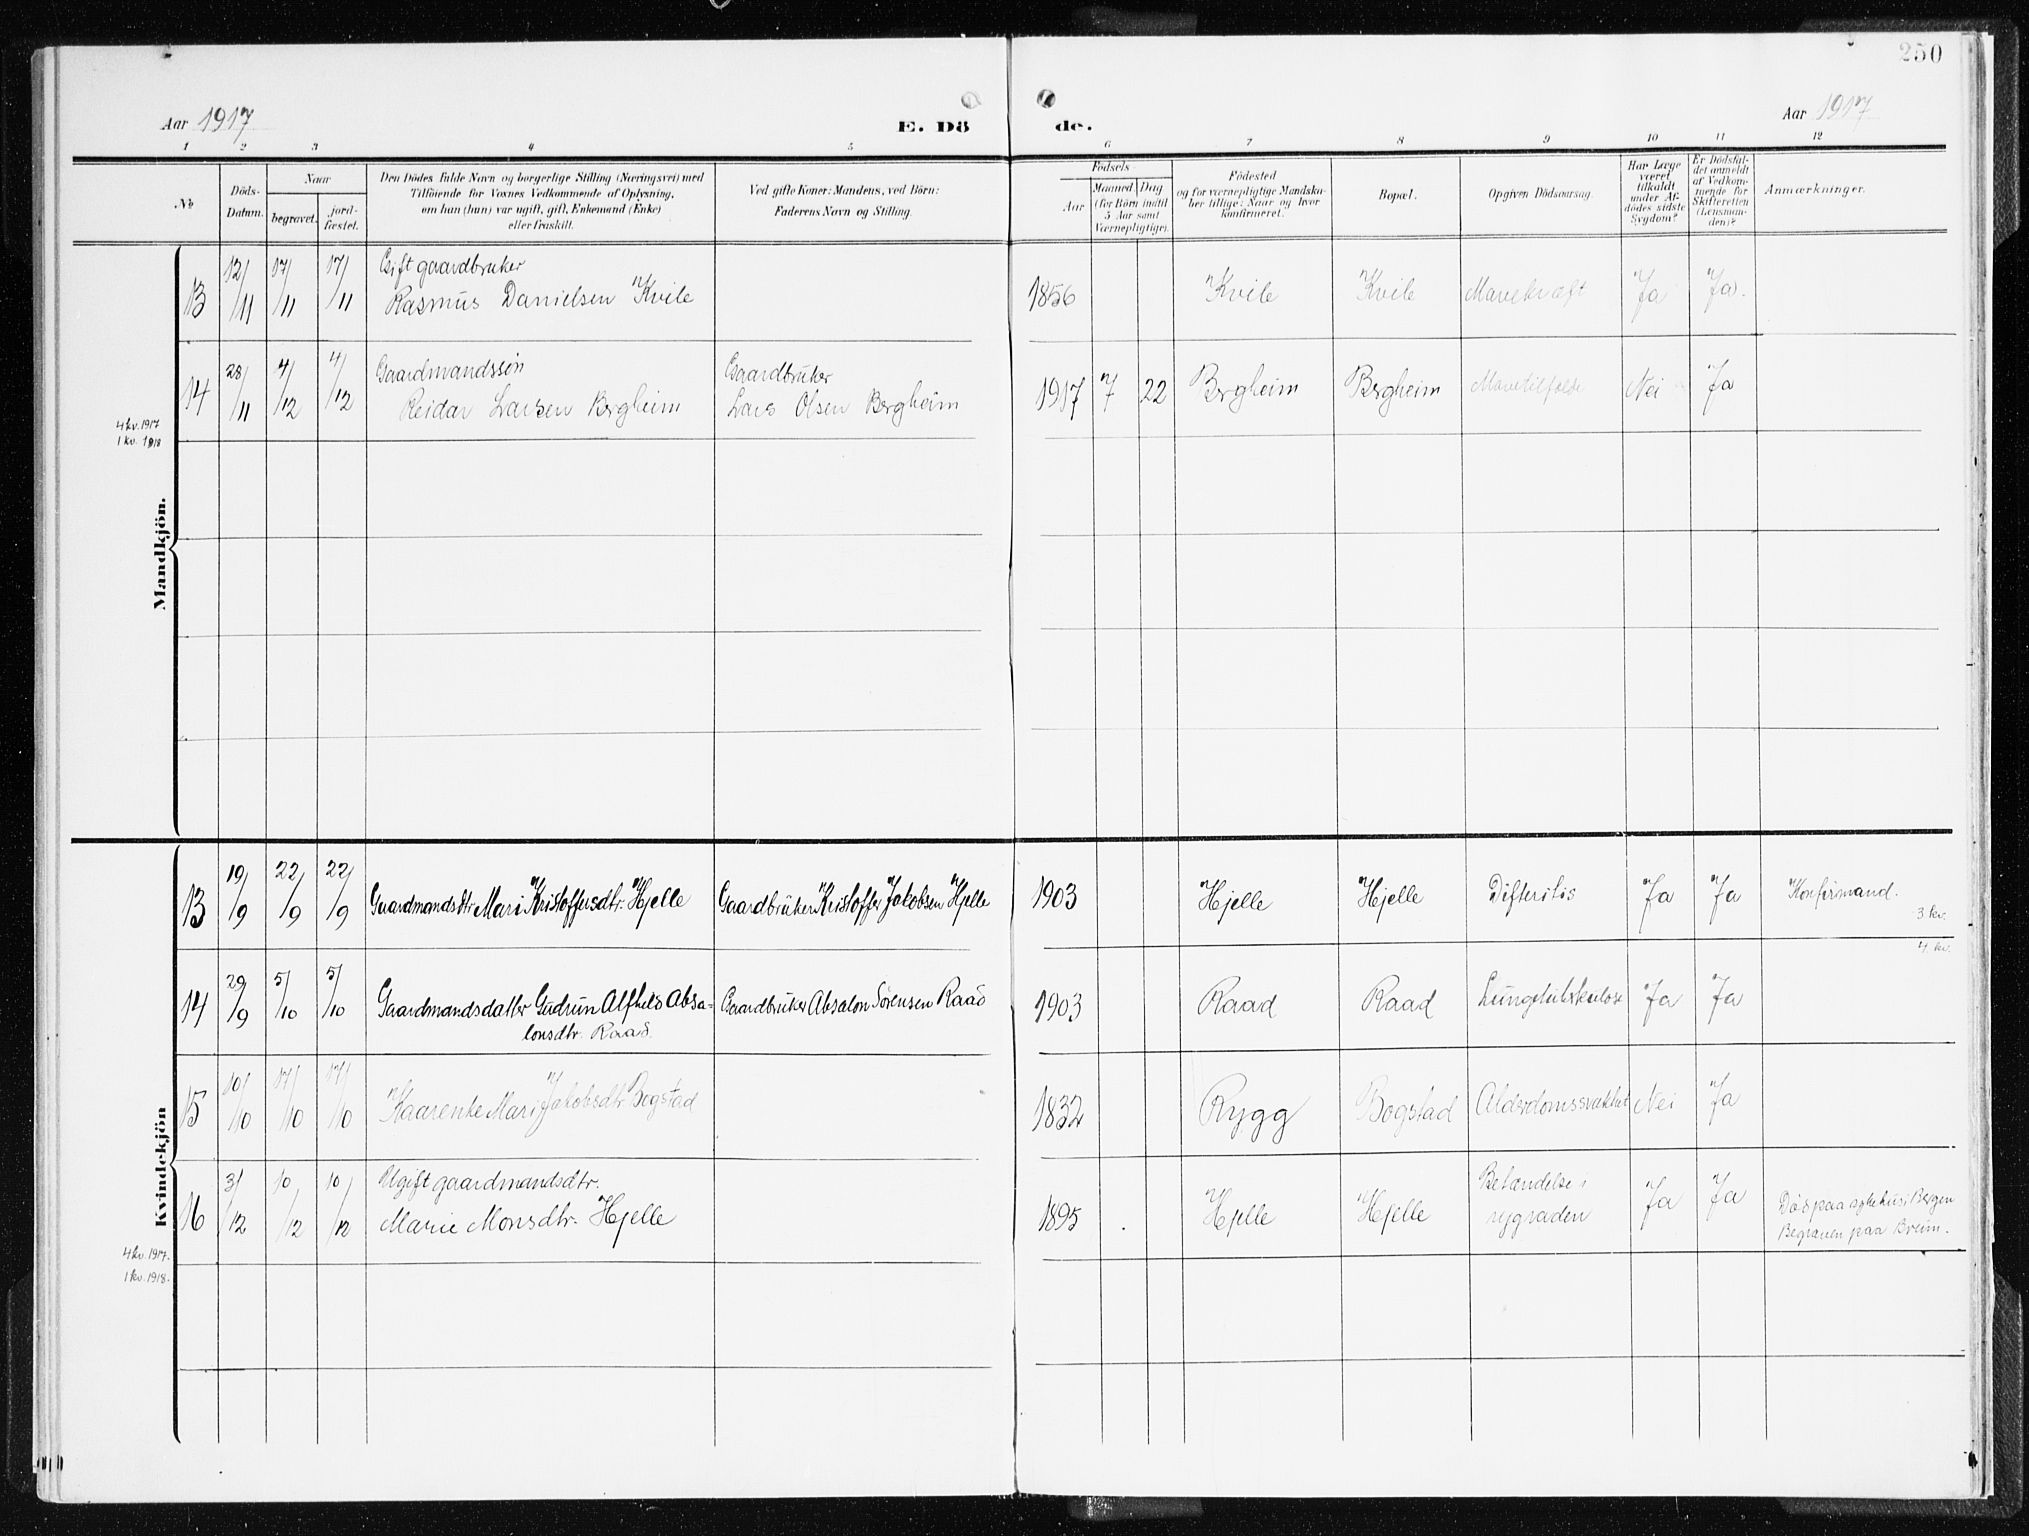 250
Aar 1917
E. Dö
de.
Aar 1917
1 2 3 4 5 6 7 8 9 10 11 12
No
Döds-Datum.
Naar
begravet.
jordfæstet.
Den Dödes fulde Navn og borgerlige Stilling (Næringsvei) med
Tilföiende for Voxnes Vedkommende af Oplysning,
om han (hun) var ugift, gift, Enkemand (Enke)
eller fraskilt.
Ved gifte Koner: Mandens, ved Börn:
Faderens Navn og Stilling.
Födsels
Aar
Maaned Dag
(for Börn indtil
5 Aar samt
Værnepligtige).
Födested
og for værnepligtige Mandskaber tillige: Naar og hvor
konfirmeret.
Bopæl.
Opgiven Dödsaarsag.
Har Læge
været
tilkaldt
under Afdödes sidste
Sygdom?
Er Dödsfaldet anmeldt
af Vedkommende for
Skifteretten
(Lensmanden)?
Anmærkninger.
Mandkjön.
13 12/11 17/11 17/11 Gift gaardbruker
Rasmus Danielsen Kvile 1856 Kvile Kvile Mavekræft Ja Ja.
14 28/11 4/12 4/12 Gaardmandssön
Reidar Larsen Bergheim
Gaardbruker
Lars Olsen Bergheim 1917 7 22 Bergheim Bergheim Mavetilfelde Nei Ja
4 kv. 1917
1 kv. 1918
Kvindekjön
13 19/9 22/9 22/9 Gaardmandsdtr Mari Kristoffersdtr. Hjelle Gaardbruker Kristoffer Jakobsen Hjelle 1903 Hjelle Hjelle Difteritis Ja Ja Konfirmand.
3. kv.
4. kv.
14 29/9 5/10 5/10 Gaardmandsdatter Gudrun Alfhild Absa-
lonsdtr. Raad. Gaardbruker Absalon Sörensen Raad 1903 Raad Raad Lungetuberkulose Ja Ja
15 10/10 17/10 17/10 Kaarenke Mari Jakobsdtr. Bogstad 1832 Rygg Bogstad Alderdomssvakhet Nei Ja
16 3/12 10/12 10/12 Ugift gaardmandsdtr.
Marie Monsdtr. Hjelle 1895 Hjelle Hjelle Betændelse i
rygraden Ja Ja Död paa sykehus i Bergen
Begraven paa Breim.
4 kv. 1917.
1 kv. 1918.